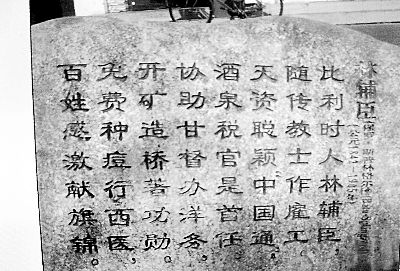 林辅臣
比利时人林辅臣
随传教士作雇工。
天资聪颖中国通，
酒泉税官是首任。
协助甘督办洋务，
开矿造桥著功勋。
免费种痘行西医，
百姓感激献旗锦。